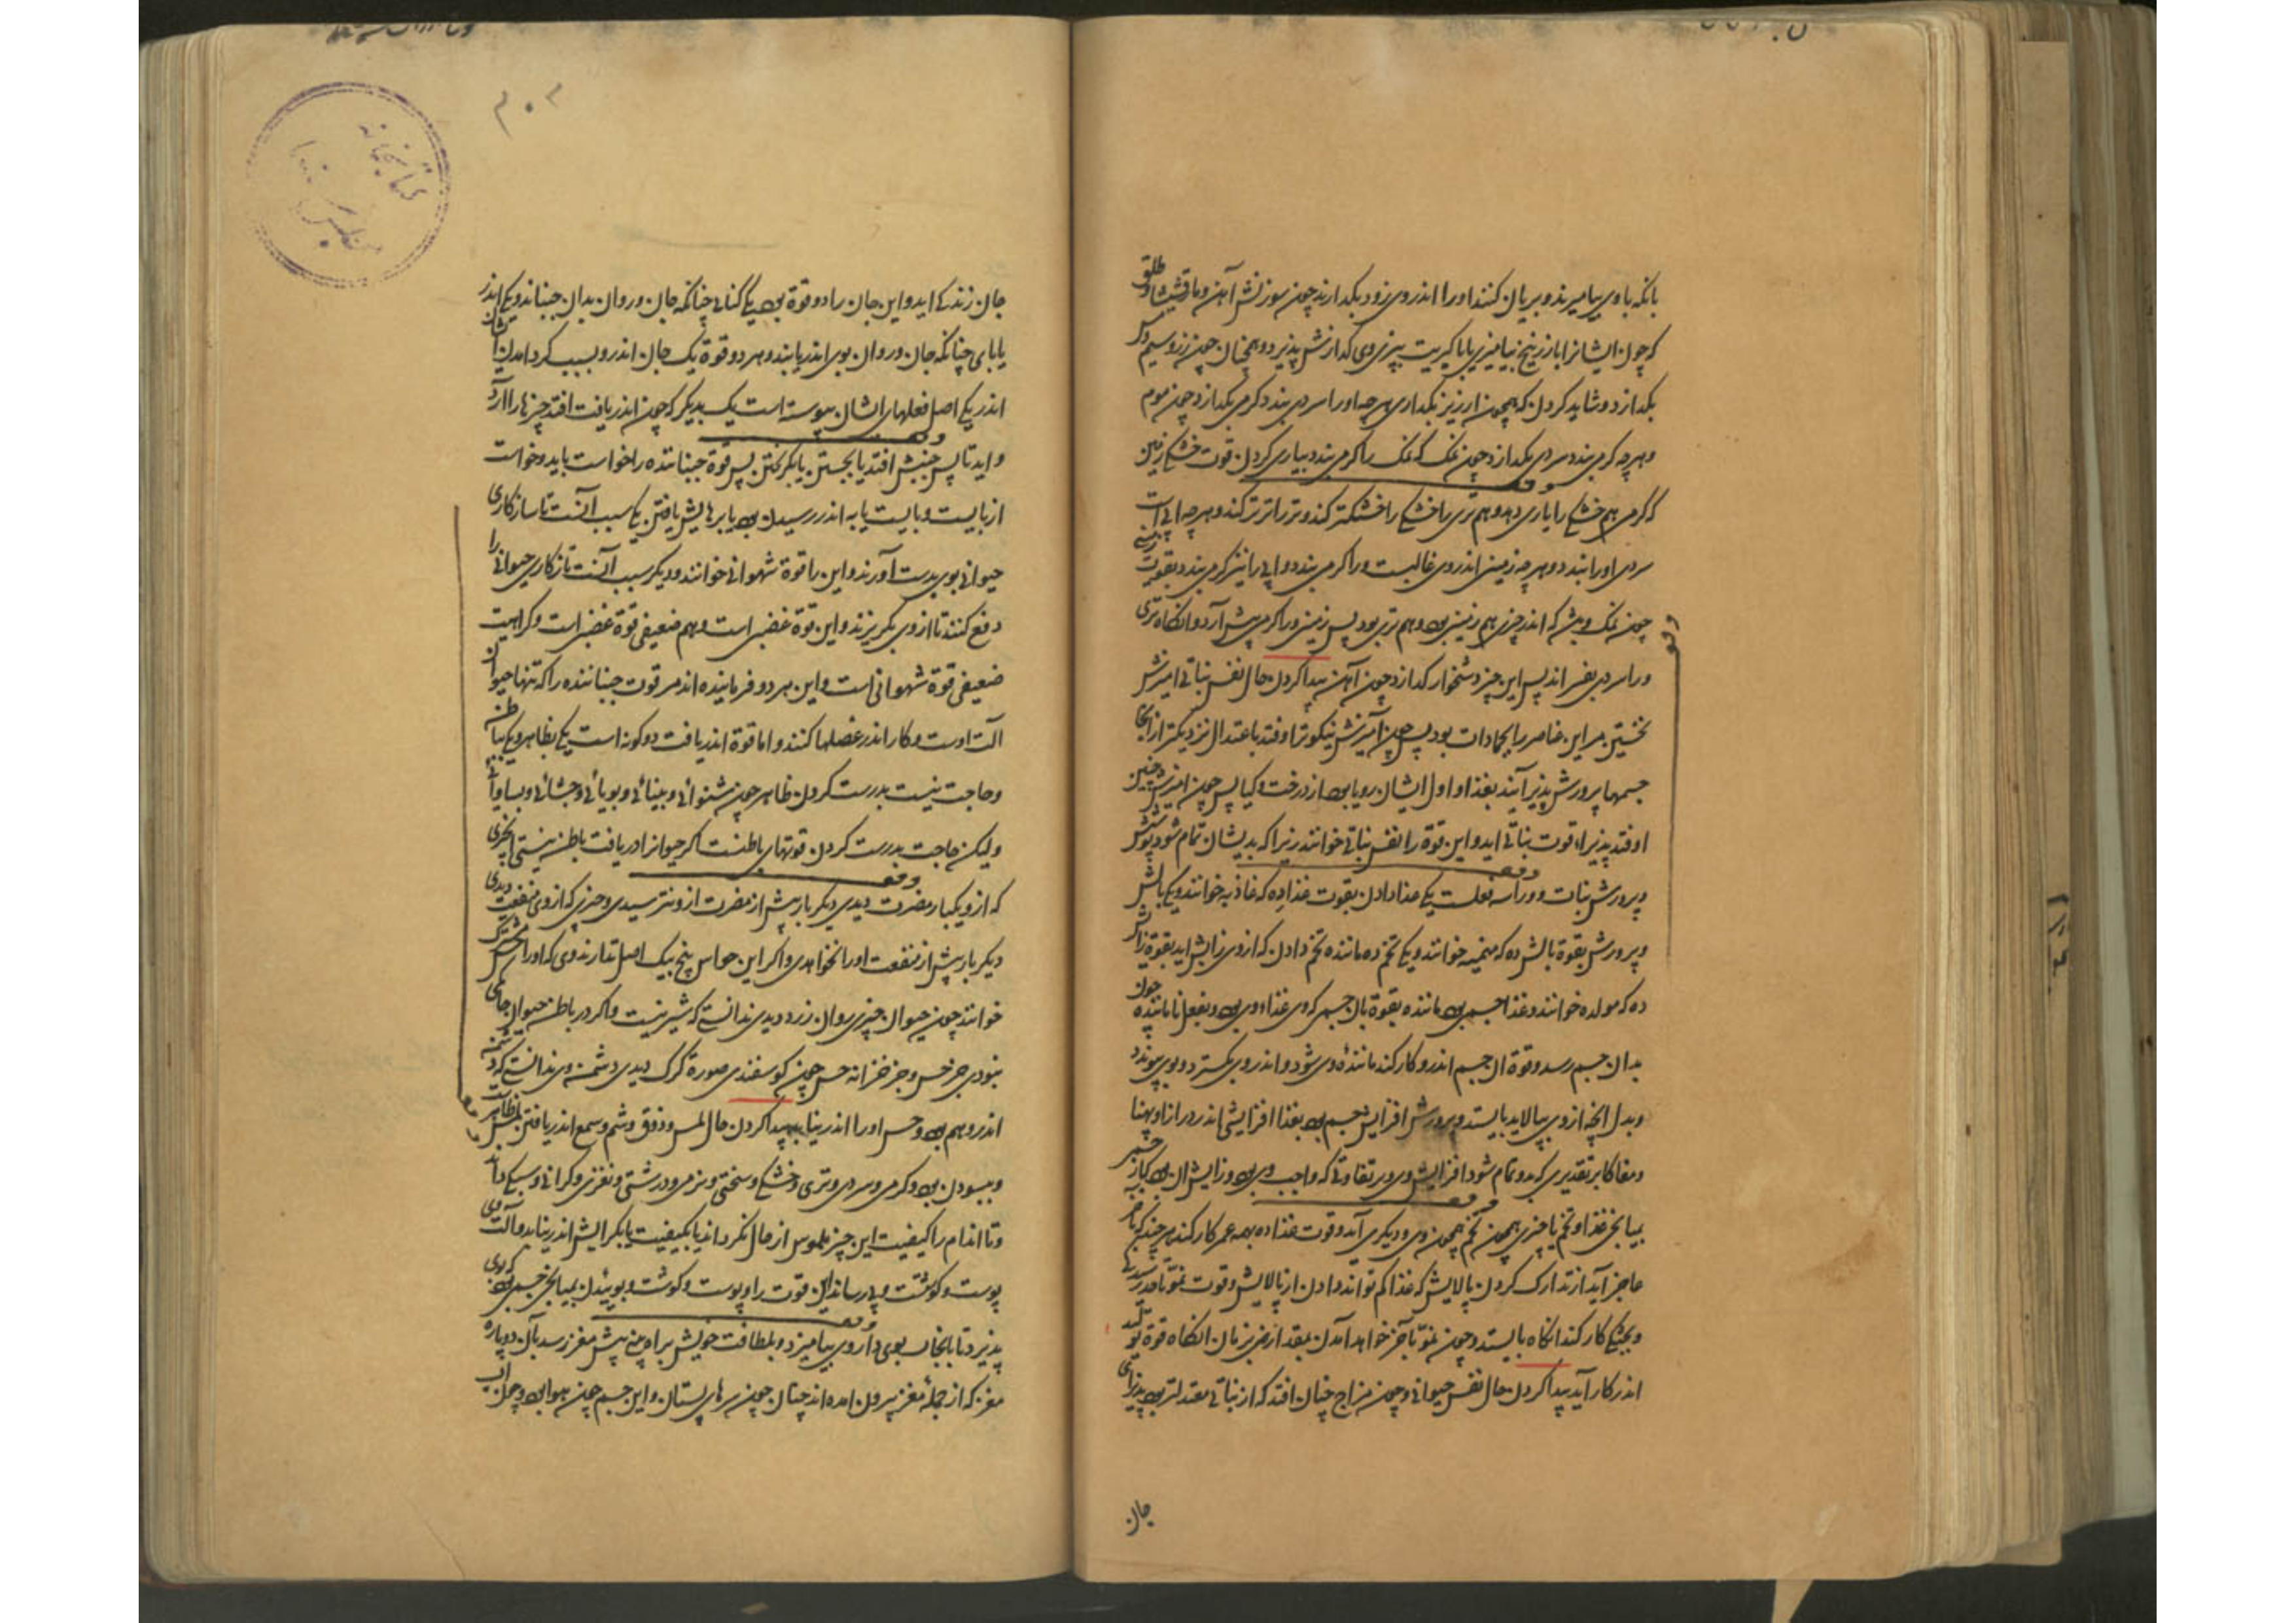 بانکه باوی بیامیزند و بریان کنند او را اندر وی زود بکدازند چون سوزش آهن و مارقشیشا و طلق
که چون ایشانرا با زرنیخ بیامیزی یا با کبریت بپزی وی کدازش پذیرد و همچنان چون زر و سیم و مس
بکدازد و شاید کردن که همچون ارزیز بکدازی هرچه او را سردی بندد کرمی بکدازد چون موم
و هرچه کرمی بندد سردی بکدازد چون نمک که نمک را کرمی بندد بیاری کردن قوت خشکی زمین
که کرمی هم خشکی را یاری دهد و هم تری را خشکی را خشکتر کند و تر را تر تر کند و هرچه آبی است
سردی او را بندد و هرچه زمینی اندر وی غالبست ورا کرمی بندد و آبی را نیز کرمی بندد بقویت زمینی
چون نمک و بیش که اندر چیزی هم زمینی بود و هم تری بود پس زمینی ورا کرمی پیش آرد و انکاه تری
ورا سردی بفسراند پس این چیز دشخوار کدازد چون آهن پیدا کردن حال نفس نباتی امیزش
نخستین مر این عناصر را جمادات بود پس چون آمیزش نیکوتر اوفتد باعتدال نزدیکتر از انجا
جسمها پرورش پذیر آیند بغذا و اول ایشان رویا بود از درخت و کیا پس چون امیزش چنین
اوفتد پذیرا قوت نباتی اید و این قوة را نفس نباتی خوانند زیرا که بدیشان تمام شود پوشش
و پرورش نبات و ورا سه فعلست یکی غذا دادن بقوت غذا ده که غاذیه خوانند و یکی بالش
و پرورش بقوة بالش ده که منمیه خوانند و یکی تخم ده ماننده تخم دادن که از وی زایش اید بقوة زایش
ده که مولده خوانند و غذا جسمی بود ماننده بقوة بان جسم که وی غذاء وی بود و بفعل نا ماننده چون
بدان جسم رسد و قوة ان جسم اندرو کار کند ماننده وی شود و اندر وی بکسترد و بوی پیوندد
و بدل انچه از وی بپالاید بایستد و پرورش افزایش جسم بود بغذا افزایشی اندر درازا و پهنا
و مغاکا بر تقدیری که بدو تمام شود افزایش وی و بر تفاوتی که واجب وی بود و زایش ان بود که از جسمی
بمیانجی غذا و تخم یا چیزی همچون تخم همچون وی دیکری آید و قوت غذا ده بهمه عمر کار کند هرچند که باخر
عاجز آید از تدارک کردن پالایش که غذا کم تواند دادن از پالایش و قوت نمو تا حد رسیدکی
و پختکی کار کند انکاه بایستد و چون نمو بآخر خواهد آمدن بمقدار نزدیزمان انکاه قوة تولید
اندر کار آید پیدا کردن حال نفس حیوانی و چون مزاج چنان افتد که از نباتی معتدلتر بود پذیرای
جان
۳۰۳
کتابخانه
جان زندکی اید و این جان را دو قوة بود یکی کنائی چنانکه جان ور وان بدان جنباند و یکی اندر
یابای چنانکه جان ور وان بوی اندر یابند و هر دو قوة یک جان اندرو بسبب کرد امدن ایشان
اندر یکی اصل فعلهای ایشان پیوسته است یک بدیکر که چون اندر یافت افتد چیزها را آرزو
و اید تا پس جنبش افتد یا بجستن یا بکریختن پس قوة جنباننده را خواست باید و خواست
از بایست و بایست یا به اندر رسیدن بود یا برهایش یافتن یکی سبب آنست تا سازکاری
حیوانی بوی بدست آورند و این را قوة شهوانی خوانند و دیکر سبب آنست تا نازکاری حیوانی را
دفع کنند تا از وی بکریزند و این قوة غضبی است و بیم ضعیفی قوة غضبی است و کراهیت
ضعیفی قوة شهوانی است و این هر دو فرماینده اند مر قوت جنباننده را که تنها حیوان
آلت اوست و کار اندر عضلها کنند و اما قوة اندر یافت دو کونه است یکی بظاهر و یکی بباطن
و حاجت نیست بدرست کردن ظاهر چون شنوائی و بینائی و بویائی و چشائی و بساوائی
ولیکن حاجت بدرست کردن قوتهای باطنست اکر حیوانرا دریافت باطن نیستی انچیزی
که ازو یکبار مضرت دیدی دیکر بار پیش از مضرت ازو نترسیدی و چیزی که از وی منفعت دیدی
دیکر بار پیش از منفعت او را نخواهدی و اکر این حواس پنج بیک اصل ندارندوی که او را حس مشترک
خوانند چون حیوان چیزی روان زرد دیدی ندانستی که شیرینست و اکر در باطن حیوان حاکمی
نبودی جز حس و جز خزانه حس چون کوسفندی صورة کرک دیدی دشمنی وی ندانستی که دشمنی
اندر وهم بود و حس او را اندر نیابد پیدا کردن حال لمس و ذوق و شم و سمع اندر یافتن لمس ظاهرست
و ببسودن بود و کرمی و سردی و تری و خشکی و سختی و نرمی و درشتی و نغزی و کرانی و سبکی داند
و تا اندام را کیفیت این چیز ملموس از حال نکرداند یا بکیفیت یا بکرایش اندر نیابد و آلت وی
پوست و کوشت و پی رساننده قوت را و پوست و کوشت و بوییدن بمیانجی جسمی بود که بوی
پذیرد تا با بخار بوی داروی بیامیزد و بلطافت خویش براه بینی پیش مغز رسد بآن دو پاره
مغز که از جمله مغز بیرون امده اند چنان چون سرهای پستان و این جسم چون هوا بود و چون آب